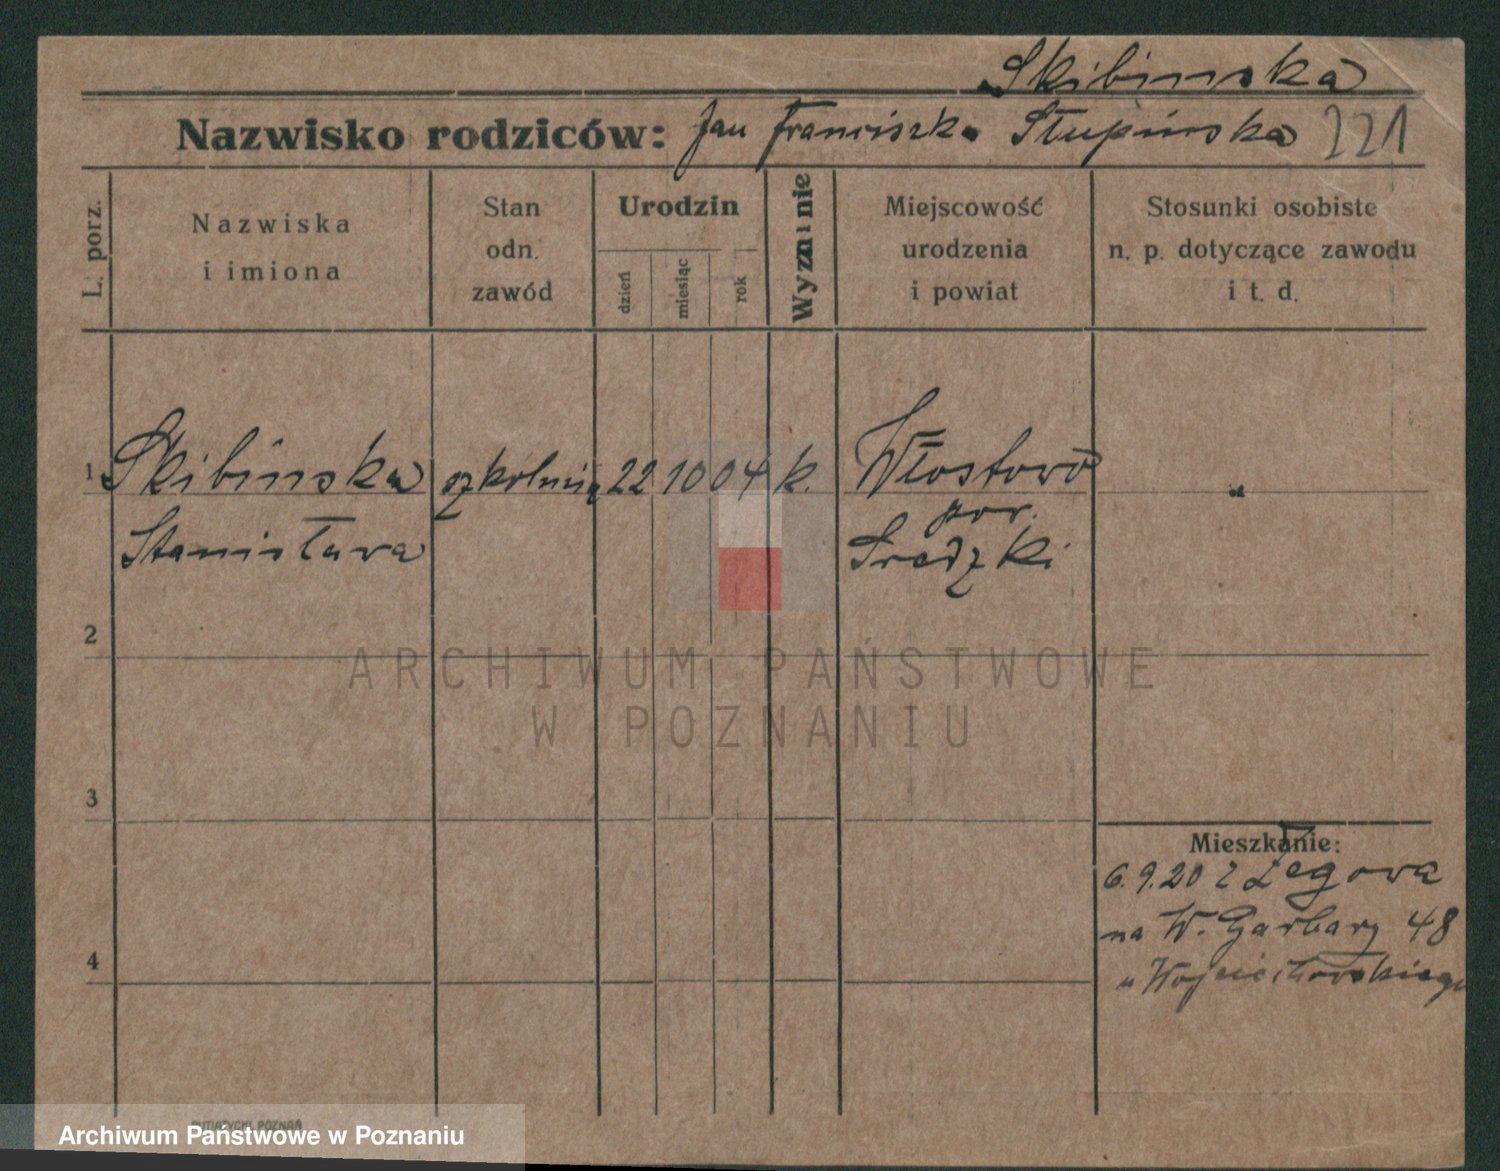 Skibinska
Nazwisko rodziców: Jan Franciszka Słupińska 221
L. porz.
Nazwiska
i imiona
Stan
odn.
zawód
Urodzin
dzień
miesiąc
rok
Wyznanie
Miejscowość
urodzenia
i powiat
Stosunki osobiste
n. p. dotyczące zawodu
i t. d.
1 Skibińska 22 10 04 k. Włostowo
pow.
Stanisława Sredzki
2
3
4
Mieszkanie:
6.9.20 z Żegowa
na W. Garbary 48
u Wojciechowskiego
ARCHIWUM PAŃSTWOWE
W POZNANIU
POZNAŃ
Archiwum Państwowe w Poznaniu